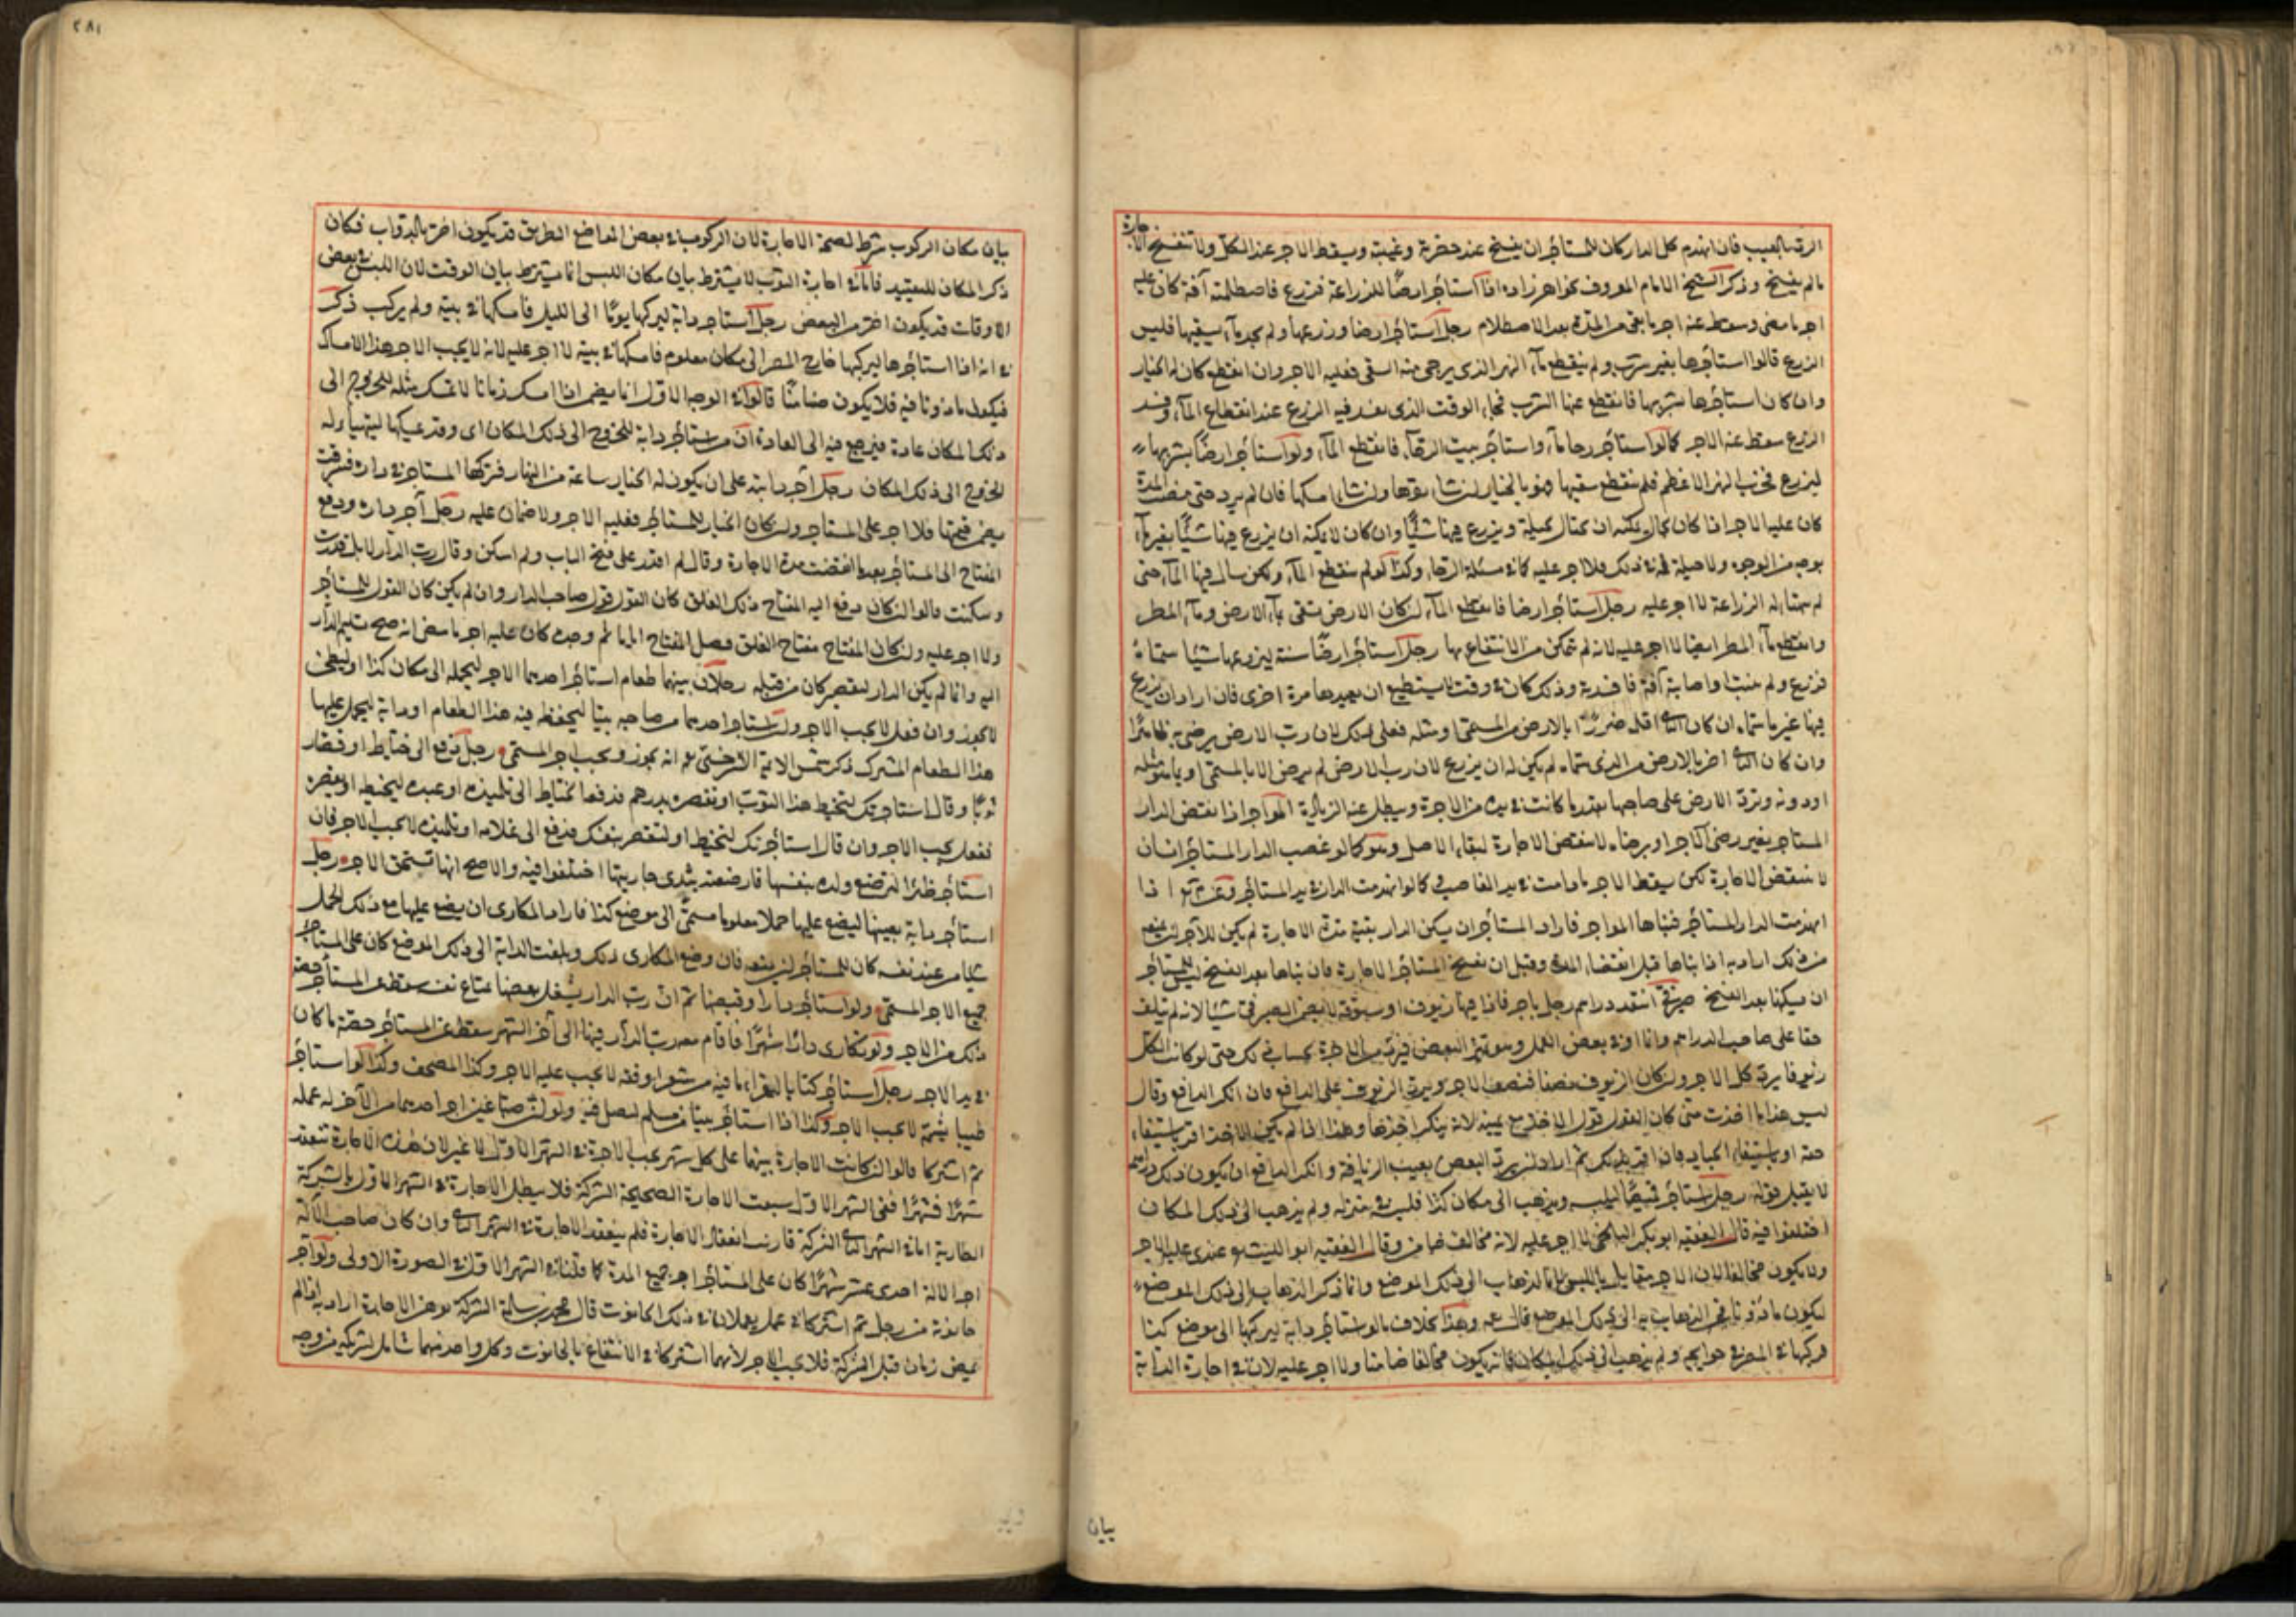 الرد بالعيب فان انهدم كل الدار كان للمستأجر ان يفسخ عند حضرة وغيبته ويسقط الاجر عند الكل ولا تنفسخ الاجارة
مالم يفسخ وذكر الشيخ الامام المعروف بخواهر زاده اذا استأجر ارضا للزراعة فزرع فاصطلمته آفة كان عليه
اجر ما مضى وسقط عنه اجر ما بقى من المدة بعد الاصطلام رجل استأجر ارضا وزرعها ولم يجد ماء يسقيها فيبس
الزرع قالوا استأجرها بغير شرب ولم ينقطع ماء النهر الذى يرجى منه السقى فعليه الاجر وان انقطع كان له الخيار
وان كان استأجرها بشربها فانقطع عنها الشرب فجاء الوقت الذى يفسد فيه الزرع عند انقطاع الماء وفسد
الزرع سقط عنه الاجر كما لو استأجر رحا ماء واستأجر بيت الرحا فانقطع الماء ولو استأجر ارضا بشربها
ليزرع فخرب النهر الاعظم فلم يستطع سقيها فهو بالخيار ان شاء نقضها وان شاء امسكها فان لم يرد حتى مضت المدة
كان عليه الاجر اذا كان بحال يمكنه ان يحتال بحيلة ويزرع فيها شيئا وان كان لا يمكنه ان يزرع فيها شيئا بغير ماء
بوجه من الوجوه ولا حيلة له فى ذلك فلا اجر عليه كما فى مسئلة الرحا وكذا لو لم ينقطع الماء ولكن سال فيها الماء حتى
لم يتهيأ له الزراعة لا اجر عليه رجل استأجر ارضا فانقطع الماء ان كان الارض تسقى بماء الارض وماء المطر
وانقطع ماء المطر ايضا لا اجر عليه لانه لم يتمكن من الانتفاع بها رجل استأجر ارضا سنة ليزرعها شيئا سماه
فزرع ولم ينبت او اصابته آفة فافسدته وذلك كان فى وقت لا يستطيع ان يعيدها مرة اخرى فان اراد ان يزرع
فيها غير ما سماه ان كان الثانى اقل ضررا بالارض من المسمى او مثله فعل ذلك لان رب الارض يرضى به ظاهرا
وان كان الثانى اضر بالارض من الذى سماه لم يكن له ان يزرع لان رب الارض لم يرض الا بالمسمى او بما هو مثله
او دونه وترد الارض على صاحبها بقدر ما كانت فى يده من الاجرة ويبطل عنه الزيادة المواجر اذا نقض الدار
المستاجر بغير رضى الآجر او برضاه لا ينقض الاجارة لبقاء الاصل وهو كما لو غصب الدار المستأجر انسان
لا ينتقض الاجارة لكن يسقط الاجر ما دامت فى يد الغاصب كما لو انهدمت الدار فى يد المستأجر وعن محمد اذا
انهدمت الدار المستأجر فبناها المواجر فاراد المستأجر ان يسكن الدار بقية مدة الاجارة لم يكن للآجر ان يمنعه
من ذلك اراد به اذا بناها قبل انقضاء المدة وقبل ان يفسخ المستأجر الاجارة فان بناها بعد الفسخ ليس للمستأجر
ان يسكنها بعد الفسخ صيرفى انتقد دراهم رجل باجر فاذا فيها زيوف او ستوقة لا يضمن الصيرفى شيئا لانه لم يتلف
حقا على صاحب الدراهم وانما اوفى بعض العمل وهو تميز البعض فيرد من الاجرة بحساب ذلك حتى لو كانت الكل
زيوفا يرد كل الاجر وان كان الزيوف نصفا فنصف الاجر ويرد الزيوف على الدافع فان انكر الدافع وقال
ليس هذا ما اخذت منى كان القول قول الآخذ مع يمينه لانه ينكر اخذ غيرها وهذا اذا لم يكن الآخذ اقر باستيفاء
حقه او باستيفاء الجياد فان اقر بذلك ثم اراد ان يرد البعض بعيب الزيافة وانكر الدافع ان يكون ذلك دراهمه
لا يقبل قوله رجل استأجر قميصا ليلبسه ويذهب الى مكان كذا فلبسه فى منزله ولم يذهب الى ذلك المكان
اختلفوا فيه قال الفقيه ابو بكر البلخى لا اجر عليه لانه مخالف ضامن وقال الفقيه ابو الليث عندى عليه الاجر
ولا يكون مخالفا لان الاجر مقابل باللبس لا بالذهاب الى ذلك الموضع وانما ذكر الذهاب الى ذلك الموضع
ليكون مأذونا فى الذهاب به الى ذلك الموضع قال وهذا بخلاف ما لو استأجر دابة ليركبها الى موضع كذا
فركبها فى المصر فى حوايجه ولم يذهب الى ذلك المكان فانه يكون مخالفا ضامنا ولا اجر عليه لان فى اجارة الدابة
بيان
٢٨١
بيان مكان الركوب شرط لصحة الاجارة لان الركوب فى بعض المواضع الطريق قد يكون اضر بالدواب فكان
ذكر المكان للتقييد فاما فى اجارة الثوب لا يشترط بيان مكان اللبس انما يشترط بيان الوقت لان اللبس فى بعض
الاوقات قد يكون اضر من البعض رجل استأجر دابة ليركبها يوما الى الليل فامسكها فى بيته ولم يركب ذكر
انه اذا استأجرها ليركبها خارج المصر الى مكان معلوم فامسكها فى بيته لا اجر عليه لانه لا يجب الاجر بهذا الامساك
فيكون مأذونا فيه فلا يكون ضامنا قالوا فى الوجه الاول انما يضمن اذا امسك زمانا لا تمسك مثله للخروج الى
ذلك المكان عادة فيرجع فيه الى العادة ان من استأجر دابة للخروج الى ذلك المكان اى وقدر يمسكها ليتهيأ له
الخروج الى ذلك المكان رجل آجر دابته على ان يكون له الخيار ساعة من النهار فتركها المستاجر فى داره فسرقت
يضمن قيمتها فلا اجر على المستاجر وان كان الخيار للمستأجر فعليه الاجر ولا ضمان عليه رجل آجر داره ودفع
المفتاح الى المستأجر بعد ما انقضت مدة الاجارة وقال لم اقدر على فتح الباب ولم اسكن وقال رب الدار لا بل قدرت
وسكنت قالوا ان كان دفع اليه المفتاح ذلك الغلق كان القول قول صاحب الدار وان لم يكن كان القول للمستأجر
ولا اجر عليه وان كان المفتاح مفتاح الغلق كان عليه اجر ما مضى انه صح تسليم الدار
اليه وانما لم يكن الدار لتقصير كان من قبله رجلان بينهما طعام استأجر احدهما الاجر ليحمله الى مكان كذا او ليطحن
لا يجوز وان فعل لا يجب الاجر ولو استأجر احدهما من صاحبه بيتا ليحفظ فيه هذا الطعام او دابة ليحمل عليها
هذا الطعام المشترك ذكر شمس الائمة السرخسى انه يجوز ويجب اجر المسمى رجل دفع الى خياط او قصار
ثوبا وقال استأجرتك لتخيط هذا الثوب او تقصره بدرهم فدفعه الخياط الى تلميذه او عبده ليخيطه او يقصره
ففعل يجب الاجر وان قال استأجرتك لتخيط او لتقصر بنفسك فدفع الى غلامه او تلميذه لا يجب الاجر فان
استأجر ظئرا لترضع ولده بنفسها فارضعته بثدى جاريتها اختلفوا فيه والاصح انها تستحق الاجر رجل
استأجر دابة بعينها ليضع عليها حملا معلوما مسمى الى موضع كذا فاراد المكارى ان يضع عليها مع ذلك الحمل
شيئا من عند نفسه كان للمستأجر ان يمنعه فان وضع المكارى ذلك وبلغت الدابة الى ذلك الموضع كان على المستأجر
جميع الاجر المسمى ولو استأجر دارا وقبضها ثم ان رب الدار شغل بعضها بمتاع نفسه سقط عن المستأجر حصة
ذلك من الاجر ولو تكارى دارا شهرا فاقام معه رب الدار فيها الى آخر الشهر سقط عن المستأجر حصة ما كان
فى يده الاجر رجل استأجر كتابا ليقرأ ما فيه من شعر او فقه لا يجب عليه الاجر وكذا المصحف وكذا لو استأجر
طيبا يشمه لا يجب الاجر وكذا اذا استأجر بيتا من مسلم ليصلى فيه
ثم اشتركا قالوا ان كانت الاجارة بينهما على كل شهر يجب الاجرة فى الشهر الاول لا غير لان هذه الاجارة تنعقد
شهرا فشهرا ففى الشهر الاول سبقت الاجارة الصحيحة الشركة فلا يبطل الاجارة فى الشهر الاول بالشركة
الطارية اما فى الشهر الثانى الشركة قارنت انعقاد الاجارة فلم ينعقد الاجارة فى الشهر الثانى وان كان صاحب الآلة
اجر الآلة احدى عشر شهرا كان على المستأجر اجر جميع المدة كما قلنا فى الشهر الاول فى الصورة الاولى ولو آجر
حانوته من رجل ثم اشتركا فى عمل يعملان فى ذلك الحانوت قال محمد بن سلمة الشركة توهن الاجارة اراد به اذا لم
يمض زمان قبل الشركة فلا يجب الاجر لانهما اشتركا فى الانتفاع بالحانوت وكل واحد منهما شريكه من وجه